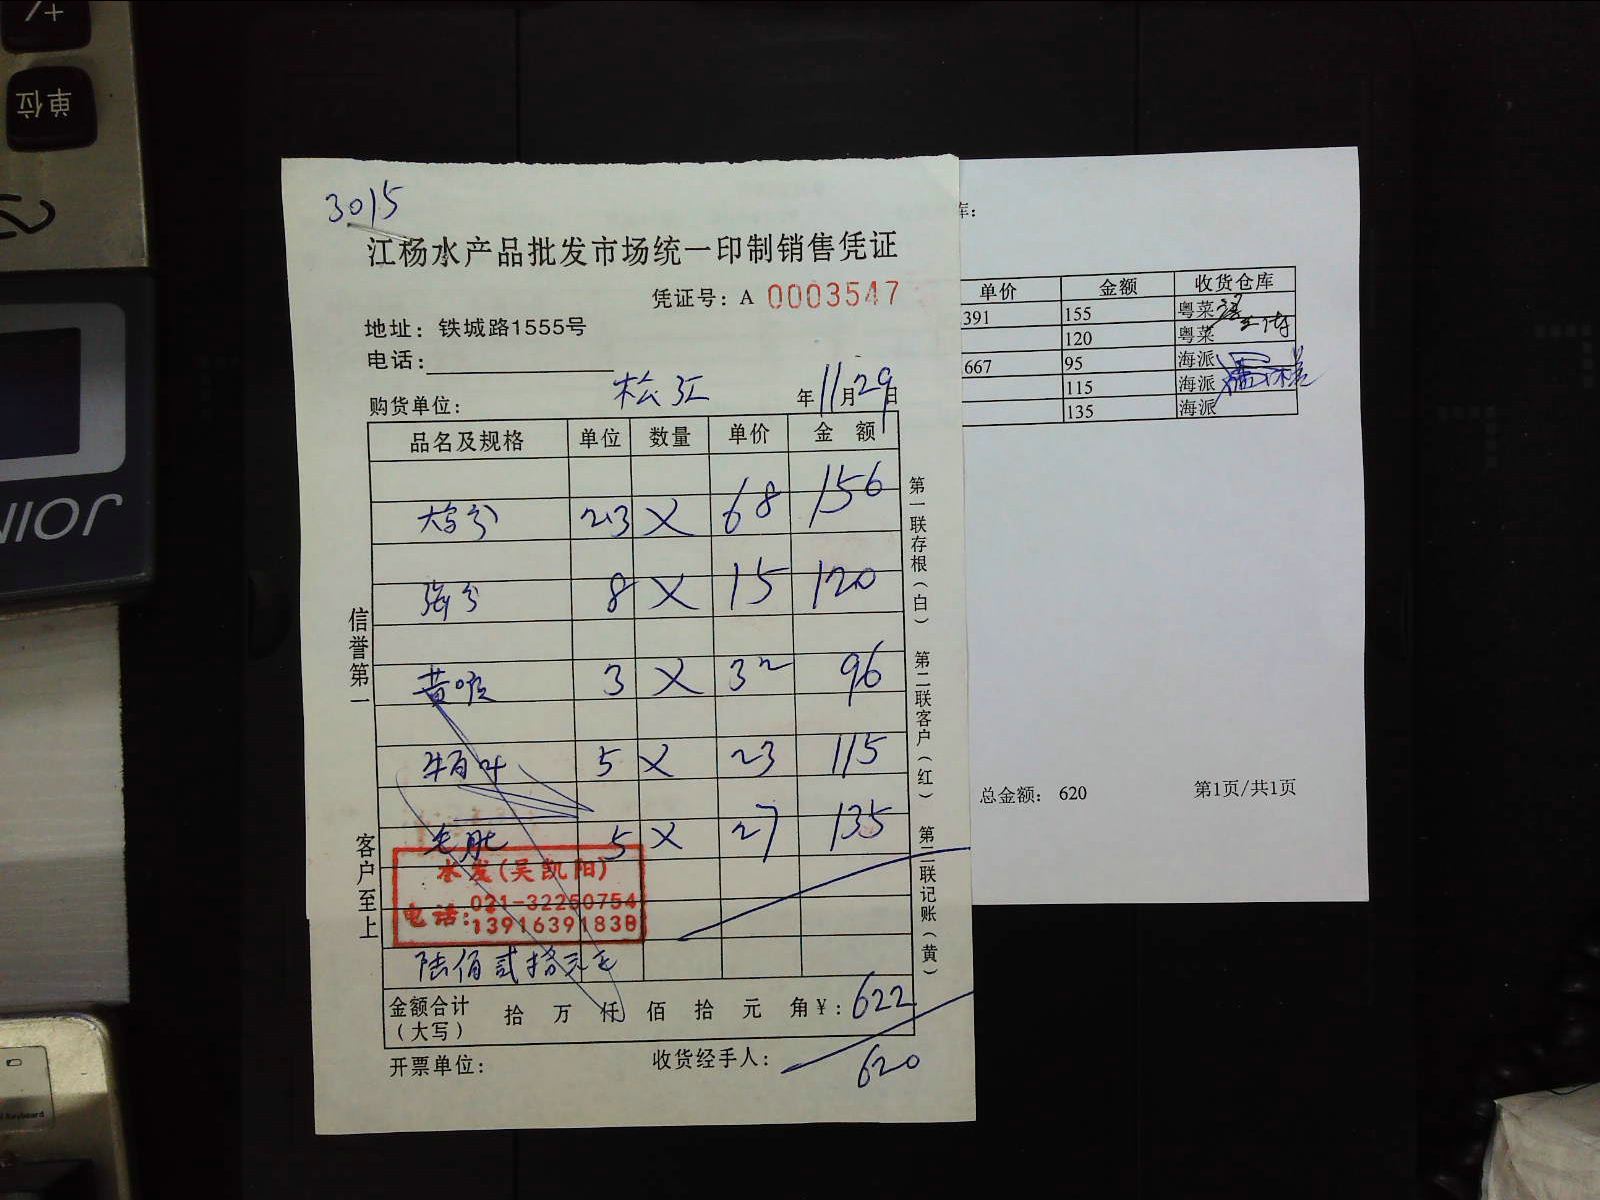 7+
单位
JOIN
3015
江杨水产品批发市场统一印制销售凭证
凭证号：A 0003547
地址：铁城路1555号
电话：
购货单位： 松江 年11月29日
品名及规格 单位 数量 单价 金 额
2.3 × 68 156
8 × 15 120
黄喉 3 × 32 96
牛百叶 5 × 23 115
毛肚 5 × 27 135
水发(吴凯阳)
电话：021-32250754
13916391838
陆佰贰拾元
金额合计（大写） 拾 万 仟 佰 拾 元 角¥：622
开票单位： 收货经手人： 620
信誉第一
客户至上
第一联存根（白） 第二联客户（红） 第三联记账（黄）
库：
单价 金额 收货仓库
391 155 粤菜
120 粤菜
667 95 海派
115 海派
135 海派
总金额： 620 第1页/共1页
Keyboard